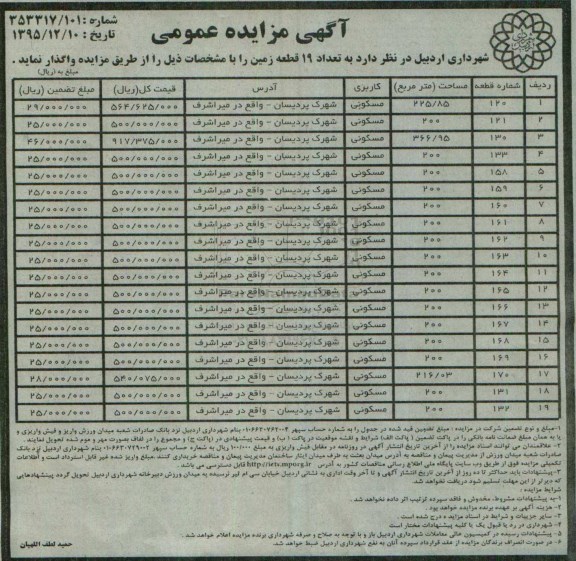 شماره: ۳۵۳۳۱۷/۱۰۱
تاریخ: ۱۳۹۵/۱۲/۱۰
آگهی مزایده عمومی
شهرداری اردبیل در نظر دارد به تعداد ۱۹ قطعه زمین را با مشخصات ذیل را از طریق مزایده واگذار نماید.
مبلغ به (ریال)
ردیف شماره قطعه مساحت (متر مربع) کاربری آدرس قیمت کل(ریال) مبلغ تضمین (ریال)
۱ ۱۲۰ ۲۲۵/۸۵ مسکونی شهرک پردیسان - واقع در میراشرف ۵۶۴/۶۲۵/۰۰۰ ۲۹/۰۰۰/۰۰۰
۲ ۱۲۱ ۲۰۰ مسکونی شهرک پردیسان - واقع در میراشرف ۵۰۰/۰۰۰/۰۰۰ ۲۵/۰۰۰/۰۰۰
۳ ۱۳۰ ۳۶۶/۹۵ مسکونی شهرک پردیسان - واقع در میراشرف ۹۱۷/۳۷۵/۰۰۰ ۴۶/۰۰۰/۰۰۰
۴ ۱۳۳ ۲۰۰ مسکونی شهرک پردیسان - واقع در میراشرف ۵۰۰/۰۰۰/۰۰۰ ۲۵/۰۰۰/۰۰۰
۵ ۱۵۸ ۲۰۰ مسکونی شهرک پردیسان - واقع در میراشرف ۵۰۰/۰۰۰/۰۰۰ ۲۵/۰۰۰/۰۰۰
۶ ۱۵۹ ۲۰۰ مسکونی شهرک پردیسان - واقع در میراشرف ۵۰۰/۰۰۰/۰۰۰ ۲۵/۰۰۰/۰۰۰
۷ ۱۶۰ ۲۰۰ مسکونی شهرک پردیسان - واقع در میراشرف ۵۰۰/۰۰۰/۰۰۰ ۲۵/۰۰۰/۰۰۰
۸ ۱۶۱ ۲۰۰ مسکونی شهرک پردیسان - واقع در میراشرف ۵۰۰/۰۰۰/۰۰۰ ۲۵/۰۰۰/۰۰۰
۹ ۱۶۲ ۲۰۰ مسکونی شهرک پردیسان - واقع در میراشرف ۵۰۰/۰۰۰/۰۰۰ ۲۵/۰۰۰/۰۰۰
۱۰ ۱۶۳ ۲۰۰ مسکونی شهرک پردیسان - واقع در میراشرف ۵۰۰/۰۰۰/۰۰۰ ۲۵/۰۰۰/۰۰۰
۱۱ ۱۶۴ ۲۰۰ مسکونی شهرک پردیسان - واقع در میراشرف ۵۰۰/۰۰۰/۰۰۰ ۲۵/۰۰۰/۰۰۰
۱۲ ۱۶۵ ۲۰۰ مسکونی شهرک پردیسان - واقع در میراشرف ۵۰۰/۰۰۰/۰۰۰ ۲۵/۰۰۰/۰۰۰
۱۳ ۱۶۶ ۲۰۰ مسکونی شهرک پردیسان - واقع در میراشرف ۵۰۰/۰۰۰/۰۰۰ ۲۵/۰۰۰/۰۰۰
۱۴ ۱۶۷ ۲۰۰ مسکونی شهرک پردیسان - واقع در میراشرف ۵۰۰/۰۰۰/۰۰۰ ۲۵/۰۰۰/۰۰۰
۱۵ ۱۶۸ ۲۰۰ مسکونی شهرک پردیسان - واقع در میراشرف ۵۰۰/۰۰۰/۰۰۰ ۲۵/۰۰۰/۰۰۰
۱۶ ۱۶۹ ۲۰۰ مسکونی شهرک پردیسان - واقع در میراشرف ۵۰۰/۰۰۰/۰۰۰ ۲۵/۰۰۰/۰۰۰
۱۷ ۱۷۰ ۲۱۶/۰۳ مسکونی شهرک پردیسان - واقع در میراشرف ۵۴۰/۰۷۵/۰۰۰ ۲۸/۰۰۰/۰۰۰
۱۸ ۱۳۱ ۲۰۰ مسکونی شهرک پردیسان - واقع در میراشرف ۵۰۰/۰۰۰/۰۰۰ ۲۵/۰۰۰/۰۰۰
۱۹ ۱۳۲ ۲۰۰ مسکونی شهرک پردیسان - واقع در میراشرف ۵۰۰/۰۰۰/۰۰۰ ۲۵/۰۰۰/۰۰۰
۱-مبلغ و نوع تضمین شرکت در مزایده: مبلغ تضمین قید شده در جدول را به شماره حساب سپهر بنام شهرداری اردبیل نزد بانک صادرات شعبه میدان ورزش واریز و فیش واریزی و
یا به همان مبلغ ضمانت نامه بانکی را در پاکت تضمین ( پاکت الف) شرایط و نقشه موقعیت در پاکت ( ب) و قیمت پیشنهادی در (پاکت ج) و مجموع را در لفاف بصورت مهر و موم شده تحویل نمایند.
۲- علاقمندان می توانند اسناد مزایده را از آخرین تاریخ انتشار آگهی در روزنامه در مقابل فیش واریزی به مبلغ ریال به شماره حساب سپهر بنام شهرداری اردبیل نزد بانک
صادرات شعبه میدان ورزش از مدیریت پیمان و مناقصه به آدرس میدان بعثت به طرف میدان ایثار ساختمان مدیریت پیمان و مناقصه خریداری کنند. مبلغ واریز شده غیر قابل استرداد است و اطلاعات
تکمیلی مزایده فوق از طریق وب سایت پایگاه ملی اطلاع رسانی مناقصات کشور به آدرس http://iets.mporg.ir قابل دسترسی می باشد.
۳-پیشنهادات باید حداکثر تا ده روز از آخرین تاریخ انتشار آگهی و تا آخر وقت اداری به نشانی اردبیل خیابان سی ام تیر نرسیده به میدان ورزش دبیرخانه شهرداری اردبیل تحویل گردد پیشنهادهایی
که دیرتر از این مهلت تسلیم شود دریافت نخواهد شد.
شرایط مزایده:
۱-به پیشنهادات مشروط، مخدوش و فاقد سپرده ترتیب اثر داده نخواهد شد.
۲- هزینه آگهی بر عهده برنده مزایده خواهد بود.
۳- سایر جزییات و شرایط در اسناد مزایده درج شده است.
۴- شهرداری در رد یا قبول یک یا کلیه پیشنهادات مختار است
۵- پیشنهادات رسیده در کمیسیون عالی معاملات شهرداری اردبیل باز و با توجه به صلاح و صرفه شهرداری برنده مزایده اعلام خواهد شد.
۶- در صورت انصراف برندگان مزایده از عقد قرارداد سپرده آنان به نفع شهرداری اردبیل ضبط خواهد شد.
حمید لطف اللهیان